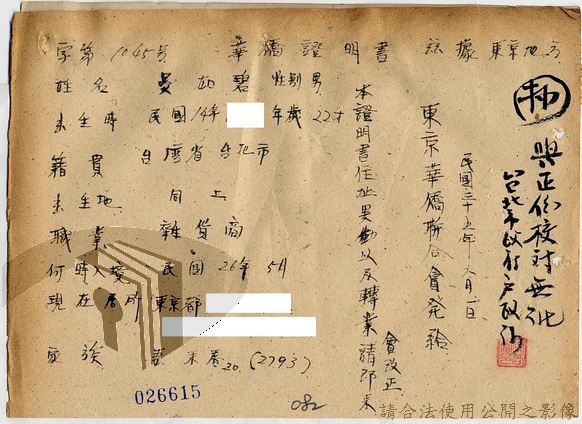 字第1045号 華僑證明書 茲據東京地方
姓名 如碧 性別男
出生時 民國14年 年歲 22才
籍貫 台灣省台北市
出生地 同上
職業 雜貨商
何時入境 民國26年5月
現在居所 東京都
20.(2793)
本證明書住址異動以及轉業請即來
會改正
東京華僑聯合會発給
民國三十五年六月一日
與正本校對無訛
台北市政府戶政
026615
082
請合法使用公開之影像